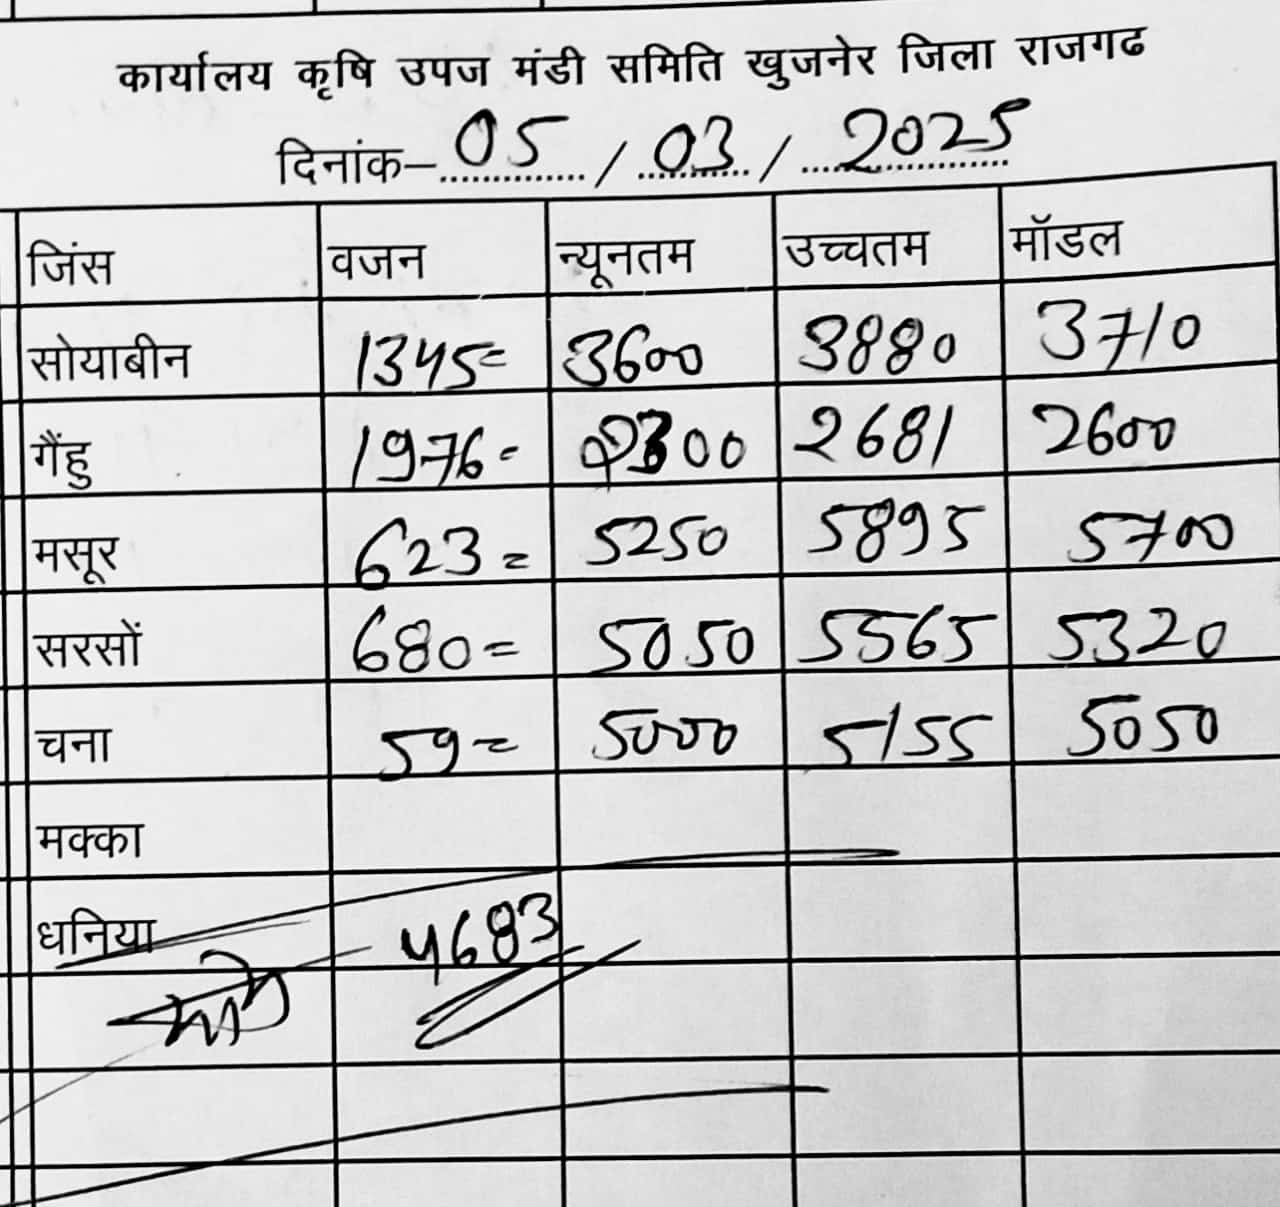 कार्यालय कृषि उपज मंडी समिति खुजनेर जिला राजगढ
दिनांक- 05 / 03 / 2025
जिंस वजन न्यूनतम उच्चतम मॉडल
सोयाबीन 1345= 3600 3880 3710
गैंहु 1976- 2300 2681 2600
मसूर 623= 5250 5895 5700
सरसों 680= 5050 5565 5320
चना 59= 5000 5155 5050
मक्का
धनिया 4683